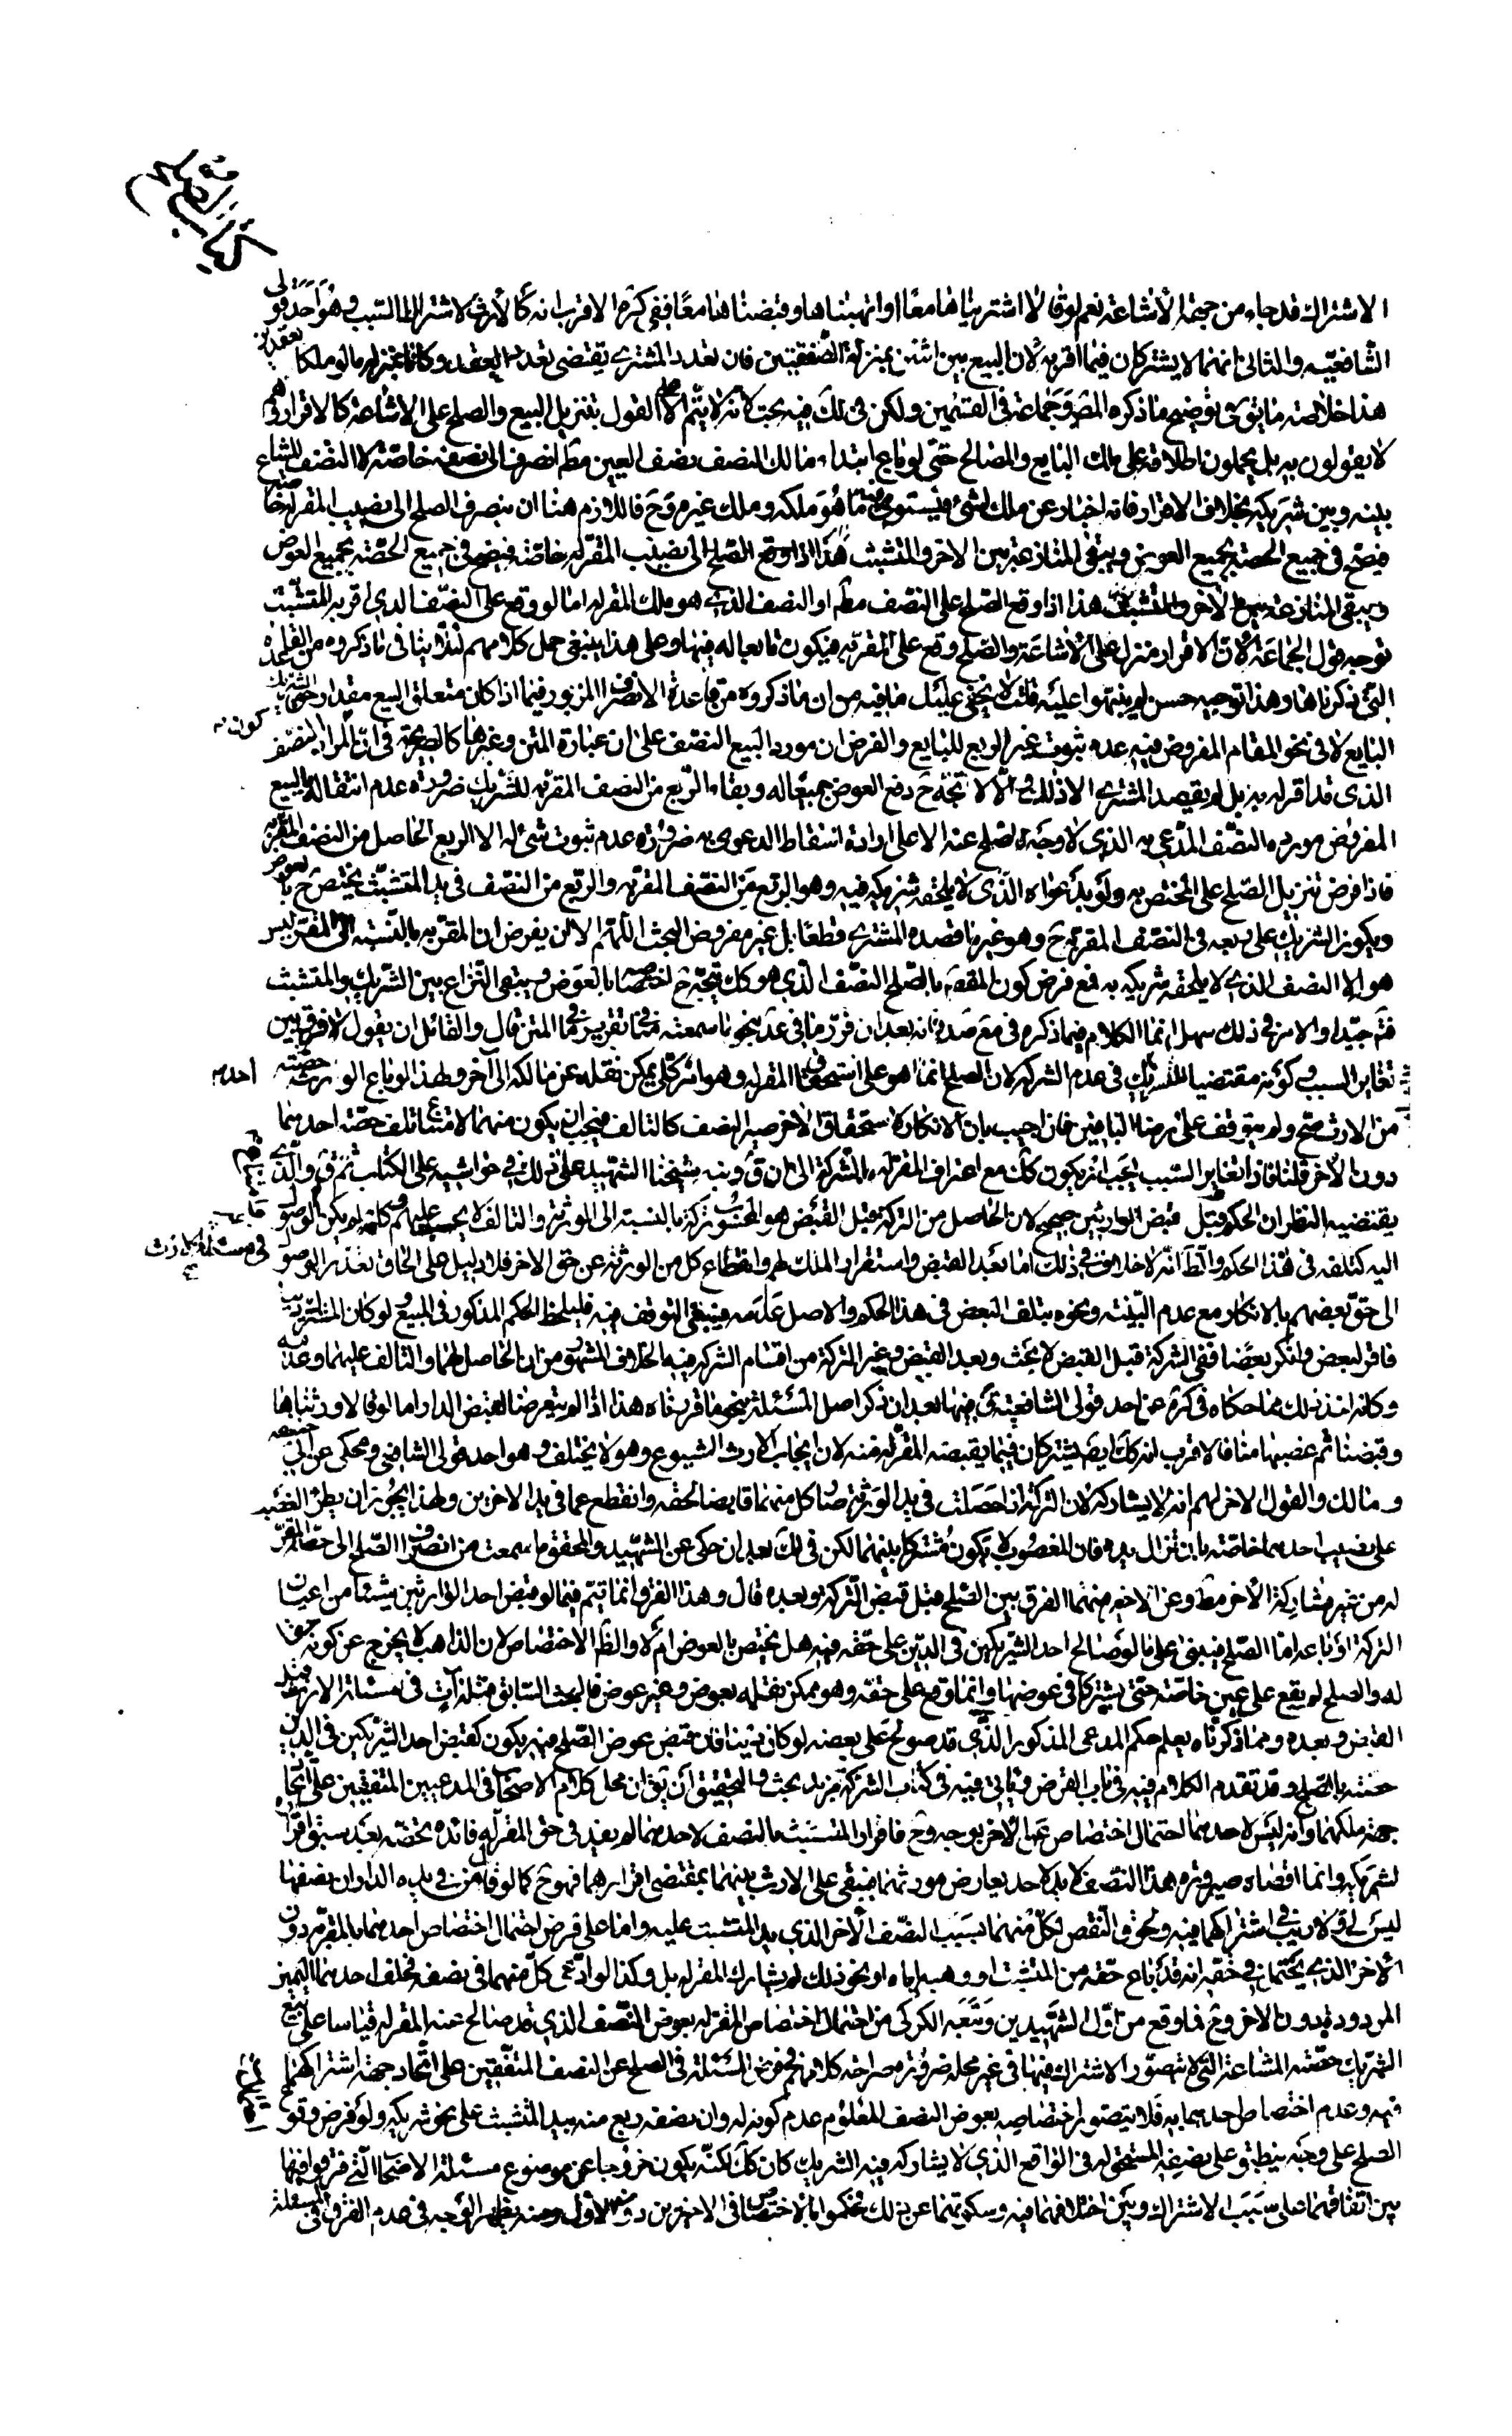 الاشتراك قد جاء من جهة الاشاعة نعم لو قالا اشتريناها معا او اتهبناها وقبضناها معا ففى كره الاقرب انه كالارث لاشتراك السبب وهو احد قولى
الشافعية والثانى انهما لا يشتركان فيما اقر به لان البيع بين اثنين بمنزلة الصفقتين فان تعدد المشترى يقتضى تعدد العقد وكانا بمنزلة ما لو ملكا بعقدين
هذا خلاصة ما يقى فى توضيح ما ذكره المص وجماعة فى القسمين ولكن فى لك فيه بحث لانه لا يتم الا على القول بتنزيل البيع والصلح على الاشاعة كالاقرار وهم
لا يقولون به بل يحملون اطلاقه على ملك البايع والمصالح حتى لو باع ابتداء مالك النصف نصف العين مطم انصرف الى نصفه خاصة لا النصف المشاع
بينه وبين شريكه بخلاف الاقرار فانه اخبار عن ملك لشئ فيستوى فيه ما هو ملكه وملك غيره وح فاللازم هنا ان ينصرف الصلح الى نصيب المقر له خاصة
فيصح فى جميع الحصة بجميع العوض ويبقى المنازعة بين الاخر والمتشبث هذا اذا وقع الصلح الى نصيب المقر له خاصة فيصح فى جميع الحصة بجميع العوض
ويبقى المنازعة بين الاخر والمتشبث هذا اذا وقع الصلح على النصف مطم او النصف الذى هو ملك المقر له اما لو وقع على النصف الذى اقر به المتشبث
توجه قول الجماعة لان الاقرار منزل على الاشاعة والصلح وقع على المقر به فيكون تابعا له فيها وعلى هذا ينبغى حمل كلامهم لئلا ينافى ما ذكروه من القاعدة
التى ذكرناها وهذا توجيه حسن لم ينبهوا عليه قلت لا يخفى عليك ما فيه من ان ما ذكروه من قاعدة الانصراف المزبور فيما اذا كان متعلق البيع مقدار حصة الشريك
البايع لا فى نحو المقام المفروض فيه عدم ثبوت غير الربع للبايع والفرض ان مورد البيع النصف على ان عبارة المتن وغيرها كالصريحة فى ان المراد النصف كون
الذى قد اقر له به بل لم يقصد المشترى الا ذلك والا لا تجه ح دفع العوض جميعا له وبقاء الربع من النصف المقر به للشريك ضرورة عدم انتقاله بالبيع
المفروض مورده النصف المدعى به الذى لا وجه لصلح عنه الا على ارادة اسقاط الدعوى به ضرورة عدم ثبوت شئ له الا الربع الحاصل من النصف المقر به
فاذا فرض تنزيل الصلح على المختص به ولو بدعواه الذى لا يلحقه شريكه فيه وهو الربع من النصف المقر به والربع من النصف فى يد المتشبث يختص ح بالعوض
ويكون الشريك على ربعه فى النصف المقر به ح وهو غير ما قصده المشترى قطعا بل غير مفروض البحث اللهم الا ان يفرض ان المقر به بالنسبة الى المقر ليس
هو الا النصف الذى لا يلحقه شريكه به فمع فرض كون المقصود بالصلح النصف الذى هو كك يتجه ح اختصاصه بالعوض ويبقى النزاع بين الشريك والمتشبث
فتم جيدا والامر فى ذلك سهل انما الكلام فيما ذكره فى مع صد فانه بعد ان قرر ما فى عد بنحو ما سمعته منا فى تقرير ما فى المتن قال والقائل ان يقول لا فرق بين
تغاير السبب وكونه مقتضيا للتشريك فى عدم الشركة لان الصلح انما هو على استحقاق المقر له وهو امر كلى يمكن نقله عن مالكه الى آخر ولهذا لو باع الوارث حصته احد
من الارث صح ولم يتوقف على رضا الباقين فان اجيب بان الانكار لاستحقاق الاخر صير النصف كالتالف فيجب ان يكون منهما لامتناع تلف حصة احدهما
دون الاخر قلنا فاذا تغاير السبب يجب ان يكون كك مع اعتراف المقر له بالشركة الى ان ق وينبه شيخنا الشهيد على ذلك فى حواشيه على الكتاب ثم ق والذى
يقتضيه النظر ان الحكم قبل قبض الوارثين صحيح لان الحاصل من التركة قبل القبض هو المحسوب تركة بالنسبة الى الورثة والتالف لا يحسب عليهم وكانه لم يكن لوصول فى مسئلة الارث
اليه كتلفه فى هذا الحكم والظ انه لا خلاف فى ذلك اما بعد القبض واستقرار الملك لهم وانقطاع كل من الورثة عن حق الاخر فلا دليل على الحاق تعذر الوصول
الى حق بعضهم بالانكار مع عدم البينة ونحوه بتلف البعض فى هذا الحكم والاصل عدمه فينبغى التوقف فيه فليلحظ الحكم المذكور فى المبيع لو كان المشترى
فاقر لبعض وانكر بعضا ففى الشركة قبل القبض لا بحث وبعد القبض وغير التركة من اقسام الشركة فيه الخلاف المشهور من ان الحاصل لهما والتالف عليهما وعدمه
وكانه اخذ ذلك مما حكاه فى كره عن احد قولى الشافعية قى فيها بعد ان ذكر اصل المسئلة بنحو ما قررناه هذا اذا لم يتعرضا لقبض الدار اما لو قالا ورثناها
وقبضنا ثم غصبها منا فالاقرب انه كك ايض يشتركان فيما يقبضه المقر له منه لان ايجاب الارث الشيوع وهو لا يختلف وهو احد قولى الشافعى ومحكى عن ابى حنيفة
ومالك والقول الاخر لهم انه لا يشاركه لان التركة اذا حصلت فى يد الورثة صار كل منهما قابضا لحقه وانقطع عما فى يد الاخرين ولهذا يجوز ان يطرء الغصب
على نصيب احدهما خاصة بان تزال يده فان المغصوب لا يكون مشتركا بينهما لكن فى لك بعد ان حكى عن الشهيد والمحقق ما سمعت من انصراف الصلح الى حصة المقر
له من غير مشاركة الاخر مط وعن الاخير منهما الفرق بين الصلح قبل قبض التركة وبعده قال وهذا الفرق انما يتم فيما لو قبض احد الوارثين شيئا من اعيان
التركة او باعه اما الصلح فيبقى على ما لو صالح احد الشريكين فى الدين على حقه فيه هل يختص بالعوض ام لا والظ الاختصاص لان الذاهب لا يخرج عن كونه حقا
له والصلح لم يقع على عين خاصة حتى يشتركا فى عوضها وانما وقع على حقه وهو ممكن نقله بعوض وغير عوض فالبحث السابق مثله آت فى مسئلة الارث قبل
القبض وبعده ومما ذكرناه يعلم حكم المدعى المذكور الذى قد صولح على بعضه لو كان دينا فان قبض عوض الصلح فيه يكون كقبض احد الشريكين فى الدين
حصته بالصلح وقد تقدم الكلام فيه فى باب القرض وياتى فيه فى كتاب الشركة مزيد بحث والتحقيق ان يق ان محل كلام الاصحاب فى المدعيين المتفقين على اتحاد
جهة ملكهما وانه ليس لاحدهما احتمال اختصاص عن الاخر بوجه وح فاقرار المتشبث بالنصف لاحدهما لم يفد فى حق المقر له فائدة تخصه بعد سبق اقراره
لشريكه وانما اقتضاه صيرورة هذا النصف لا يد لاحد يعارض مورثهما فيبقى على الارث بينهما بمقتضى اقرارهما فهو ح كما لو قال من فى يده الدار ان نصفها
ليس لى ولا ريب فى اشتراكهما فيه ولحوق النقص لكل منهما بسبب النصف الاخر الذى بيد المتشبث عليه واما على فرض احتمال اختصاص احدهما بالمقر به دون
الاخر الذى يحتمل فى حقه انه قد باع حقه من المتشبث او وهبه اياه او نحو ذلك لم يشارك المقر له بل وكذا لو ادعى كل منهما فى نصف فحلف احدهما اليمين
المردودة دون الاخر وح فما وقع من اول الشهيدين وتبعه الكركى من احتمال اختصاص المقر له بعوض النصف الذى قد صالح عنه المقر له قياسا على بيع
الشريك حصته المشاعة التى لا تتصور الاشتراك فيها فى غير محله ضرورة صراحة كلامهم فى فرض المسئلة فى الصلح عن النصف المتفقين على اتحاد جهة اشتراكهما
فيه وعدم اختصاص احدهما به فلا يتصور اختصاصه بعوض النصف المعلوم عدم كونه له وان نصفه ربع منه بيد المتشبث على نحو شريكه ولو فرض وقوع
الصلح على وجه ينطبق على نصيبه المستحق له فى الواقع الذى لا يشاركه فيه الشريك كان كك لكنه يكون خروجا عن موضوع مسئلة الاصحاب التى فرقوا فيها
بين اتفاقهما على سبب الاشتراك وبين اختلافهما فيه وسكوتهما عن ذلك فحكموا بالاختصاص فى الاخيرين دون الاول ومنه يظهر الوجه فى عدم الفرق فى المسئلة